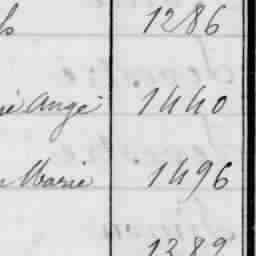 1286
Ange 1440
Marie 1496
1389